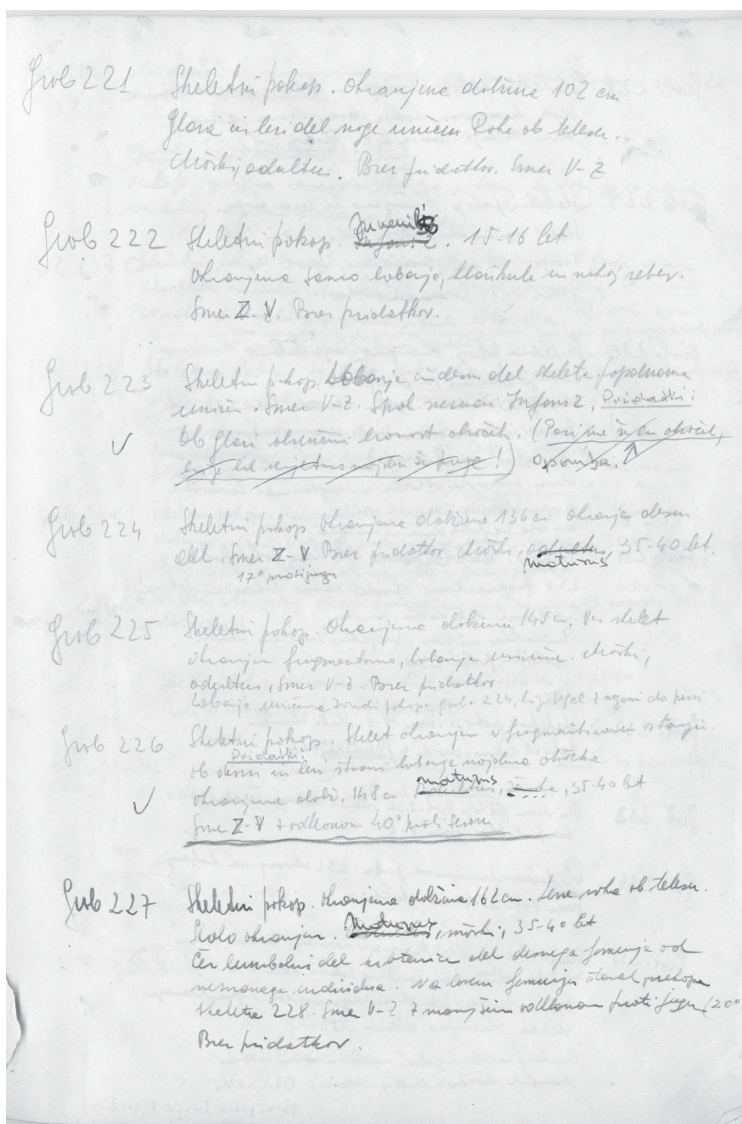 Grob 221 Skeletni pokop. Ohranjena dolžina 102 cm
Glava in levi del noge uničen Roke ob telesu.
Moški, adultus. Brez pridatkov. Smer V-Z
Grob 222 Skeletni pokop. Juvenilis Infans 2. 15-16 let
Ohranjena samo lobanja, klavikule in nekaj reber.
Smer Z-V. Brez pridatkov.
Grob 223 Skeletni pokop. Lobanja in desni del skeleta popolnoma
uničen. Smer V-Z. Spol neznan Infans 2, Pridatki:
Ob glavi obsenčni bronast obroček. (
opomba.
Grob 224 Skeletni pokop. Ohranjena dolžina 136 cm ohranjen desni
del. Smer Z-V. Brez pridatkov Moški, adultus, 35-40 let.
17° proti jugu maturus
Grob 225 Skeletni pokop. Ohranjena dolžina 145 cm. Ves skelet
ohranjen fragmentarno, lobanja uničena. Moški,
adultus, Smer V-Z. Brez pridatkov.
Lobanja uničena zaradi pokopa groba 224, ki je segal z nogami do prsi
Grob 226 Skeletni pokop. Skelet ohranjen v fragmentiranem stanju.
Pridatki:
ob desni in levi strani lobanje najdena obročka
maturus
Ohranjena dolž. 148 cm 35-40 let
Smer Z-V z odklonom 40° proti severu
Grob 227 Skeletni pokop. Ohranjena dolžina 162 cm. Leva roka ob telesu.
Maturus, moški, 35-40 let
Čez lumbalni del desnega femurja od
neznanega individua. Na levem femurju
skeleta 228. Smer V-Z z manjšim odklonom proti jugu (20°
Brez pridatkov.